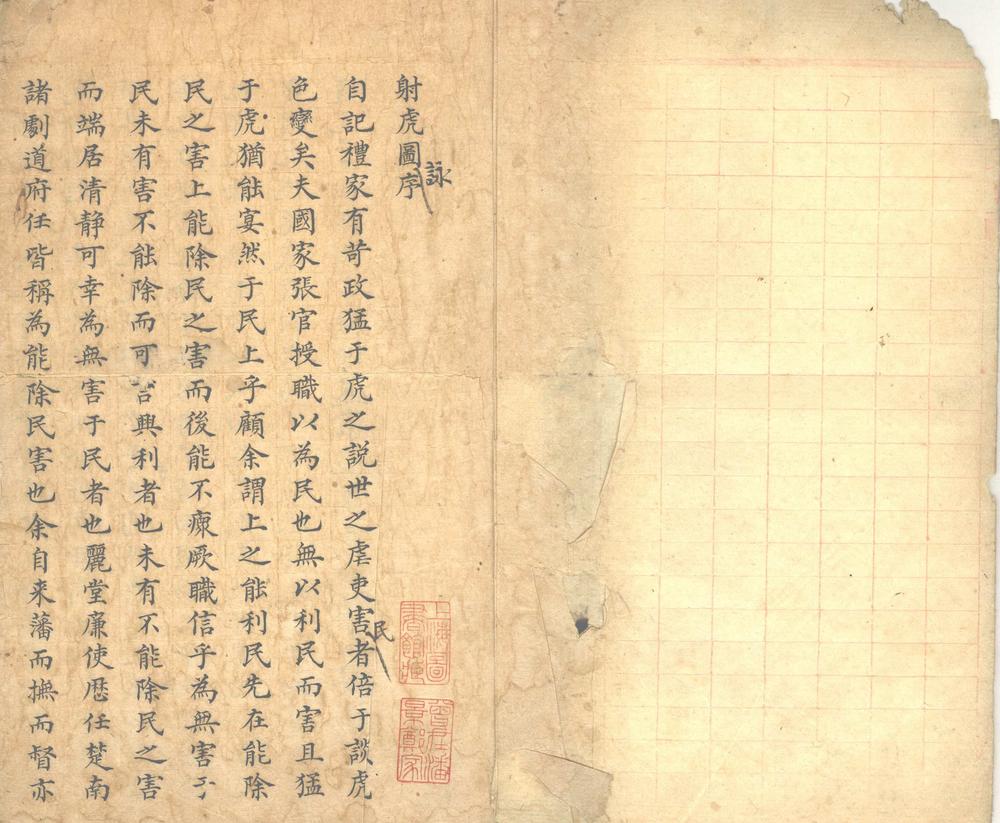 射虎圖序詠
自記禮家有苛政猛于虎之説世之虐吏害民者倍于談虎
色變矣夫國家張官授職以為民也無以利民而害且猛
于虎猶能宴然于民上乎顧余謂上之能利民先在能除
民之害上能除民之害而後能不瘝厥職信乎為無害于
民未有害不能除而可言興利者也未有不能除民之害
而端居清静可幸為無害于民者也麗堂廉使歴任楚南
諸劇道府任皆稱為能除民害也余自来藩而撫而督亦
上海圖書館藏
曾在潘景鄭家